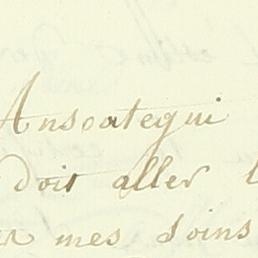 Ansoategui
doit aller
mes soins